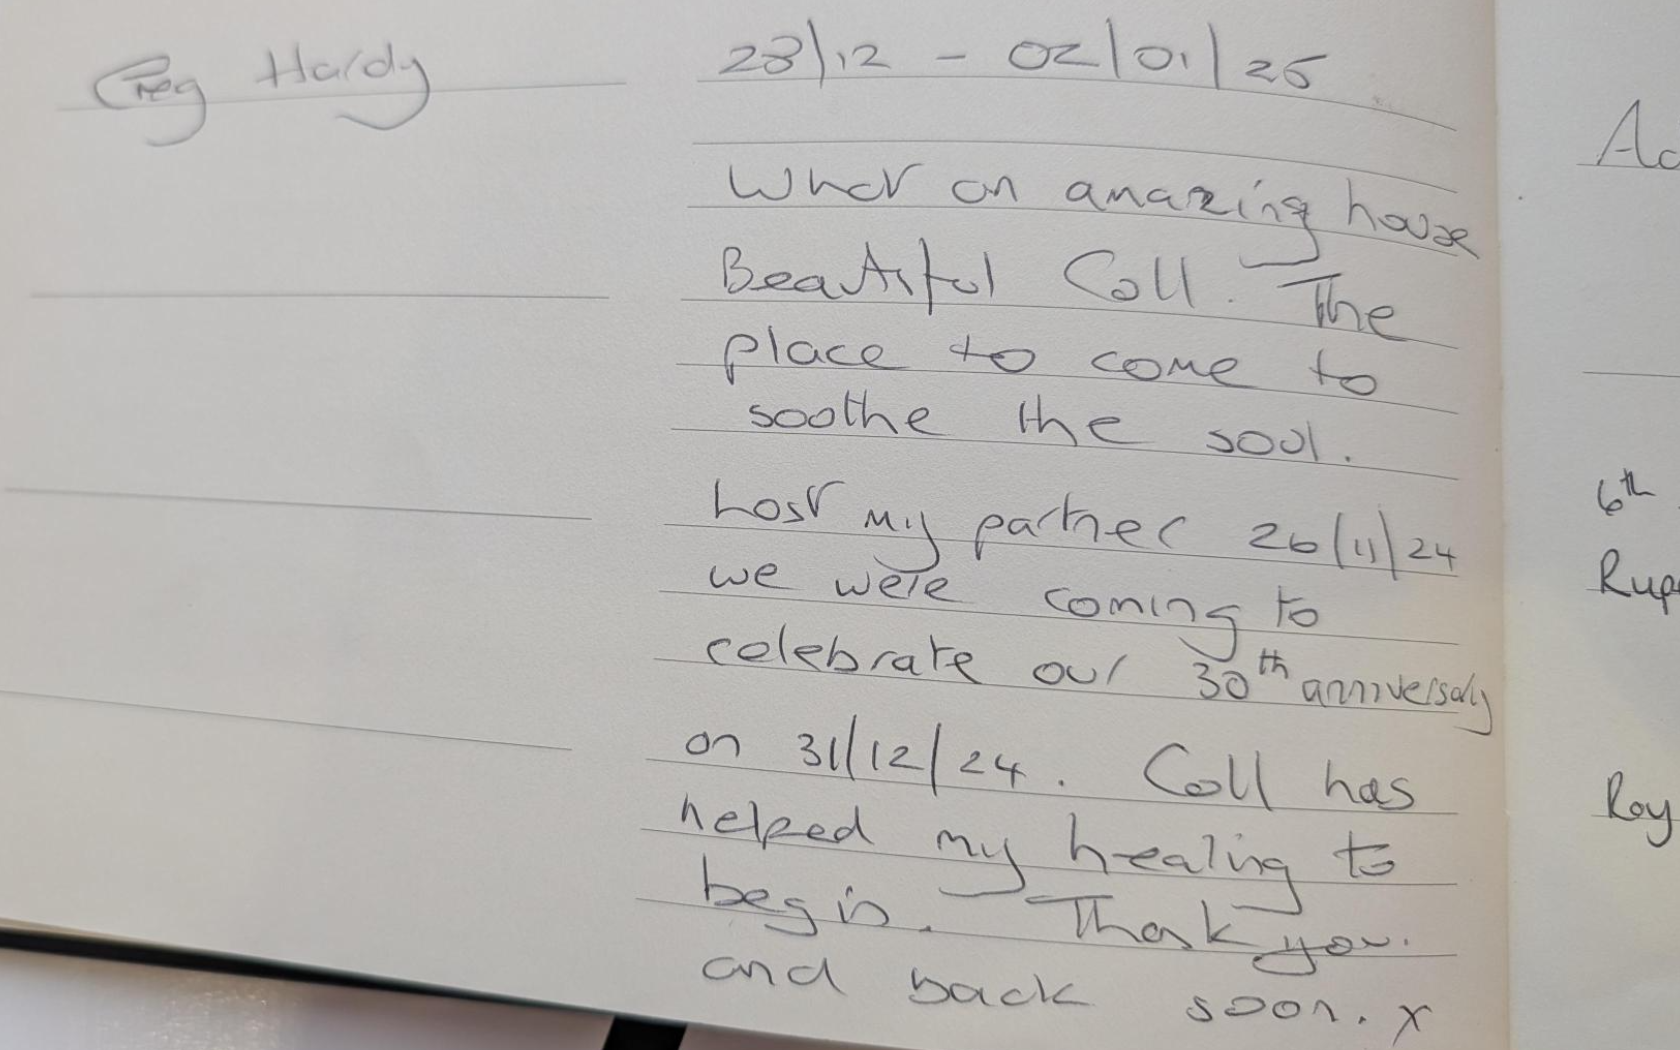 Greg Hardy 28/12 - 02/01/25
What an amazing house
Beautiful Coll. The
place to come to
soothe the soul.
Lost my partner 26/11/24
we were coming to
celebrate our 30th anniversary
on 31/12/24. Coll has
helped my healing to
begin. Thank you.
and back soon. x
Ac
6th
Rup
Roy